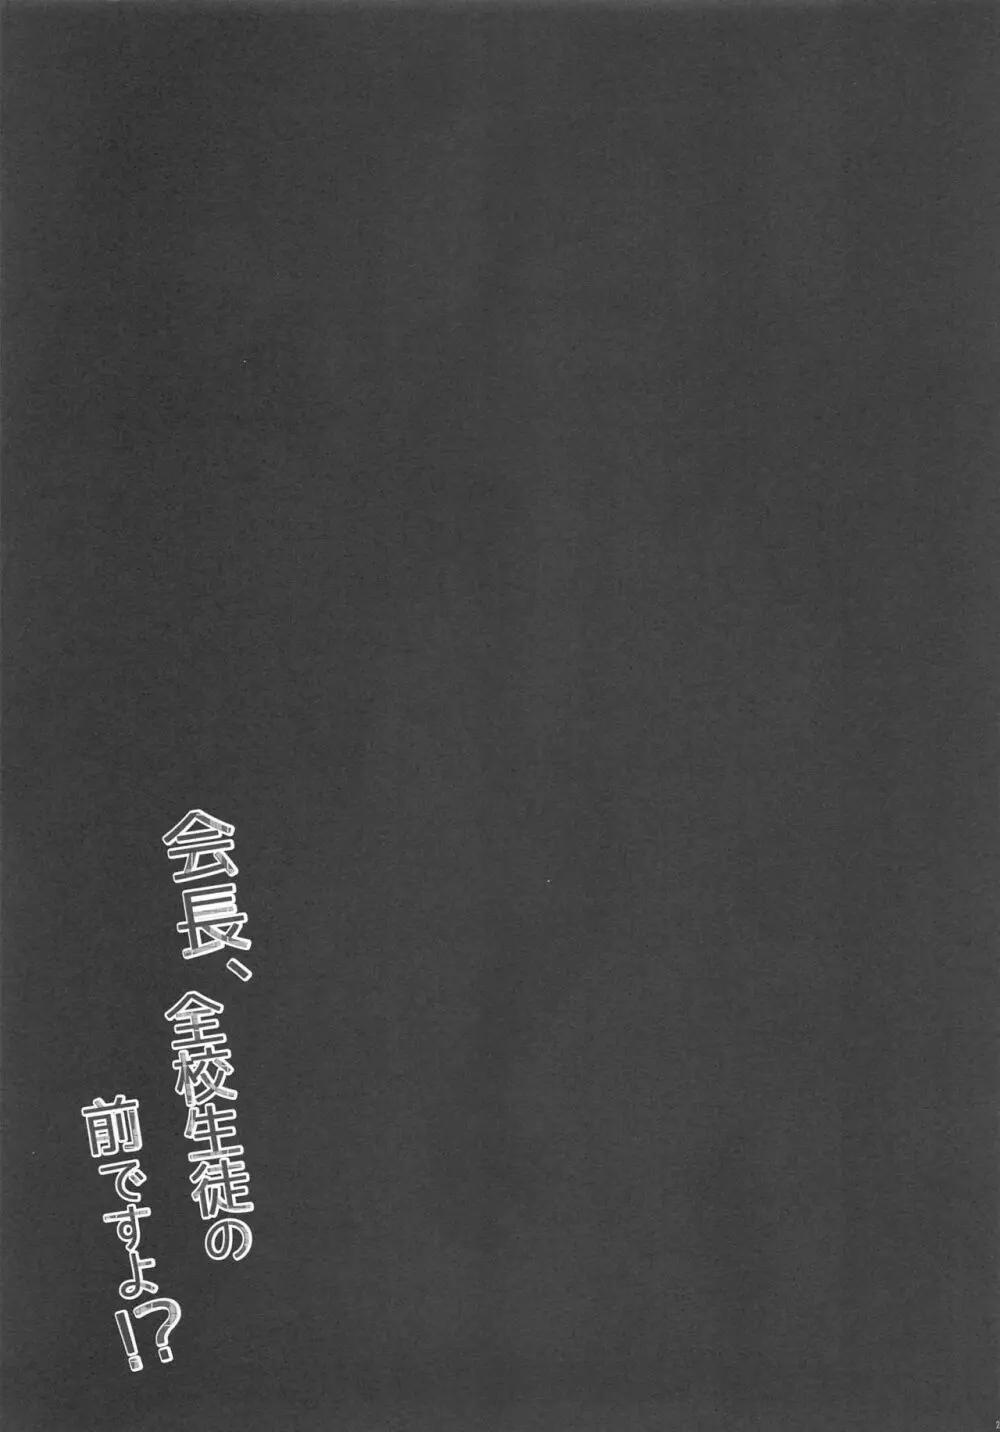 会長、
全校生徒の
前ですよ!?
2